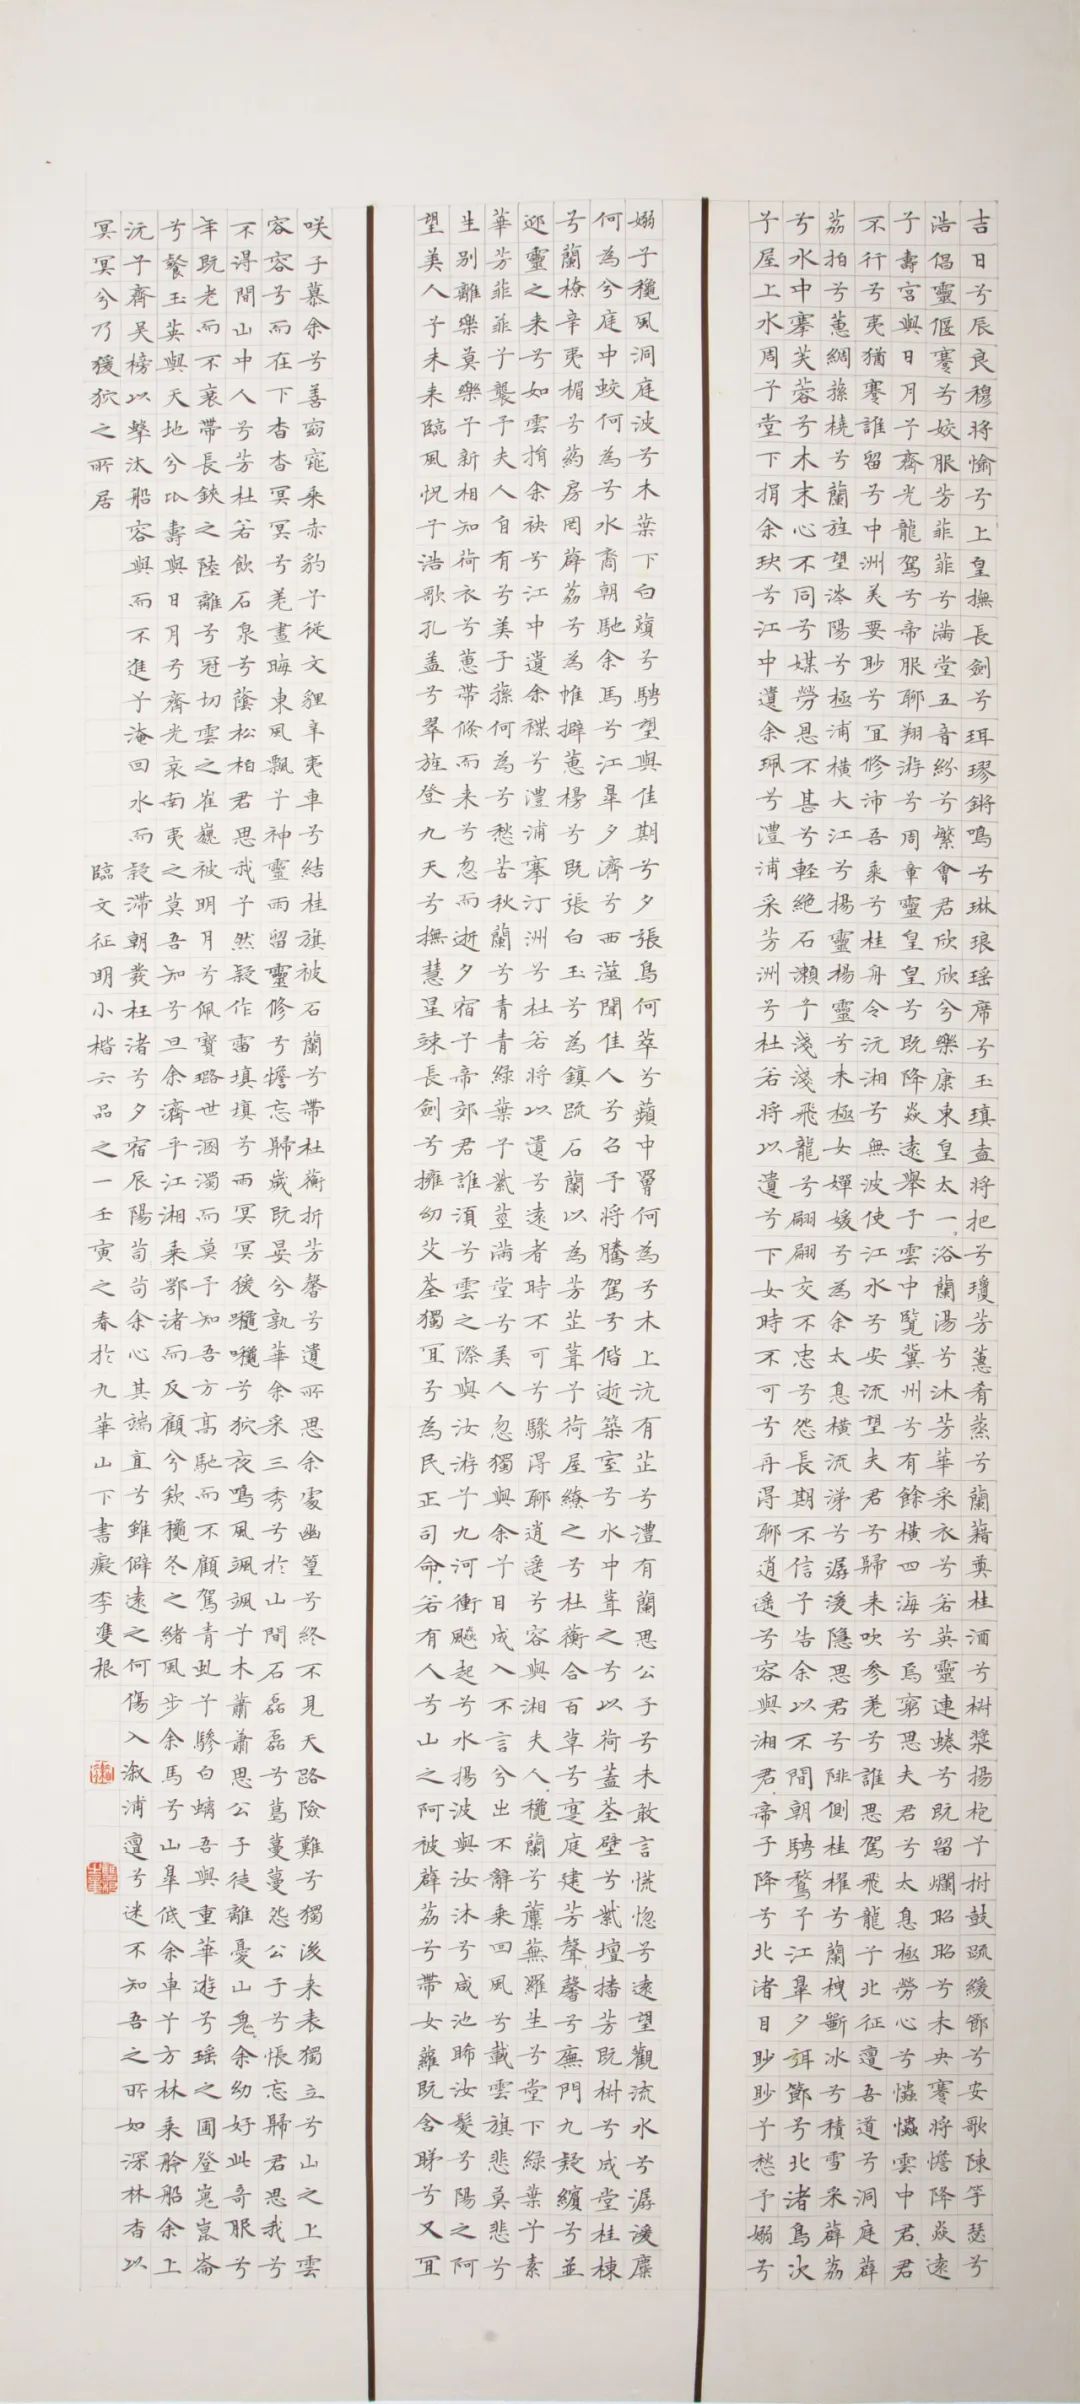 吉日兮辰良穆將愉兮上皇撫長劍兮珥璆鏘鳴兮琳琅瑤席兮玉瑱盍將把兮瓊芳蕙肴蒸兮蘭藉奠桂酒兮椒漿揚枹兮拊鼓疏緩節兮安歌陳竽瑟兮
浩倡靈偃蹇兮姣服芳菲菲兮滿堂五音紛兮繁會君欣欣兮樂康東皇太一浴蘭湯兮沐芳華采衣兮若英靈連蜷兮既留爛昭昭兮未央蹇將憺降焱遠
子壽宮與日月兮齊光龍駕兮帝服聊翔游兮周章靈皇皇兮既降焱遠舉子雲中覽冀州兮有餘橫四海兮焉窮思夫君兮太息極勞心兮懺懺雲中君君
不行兮夷猶蹇誰留兮中洲美要眇兮宜修沛吾乘兮桂舟令沅湘兮無波使江水兮安流望夫君兮歸來吹參差兮誰思駕飛龍子北征邅吾道兮洞庭薜
荔拍兮蕙綢蓀橈兮蘭旌望涔陽兮極浦橫大江兮揚靈楊靈兮未極女嬋媛兮為余太息橫流涕兮潺湲隱思君兮陫側桂櫂兮蘭枻斲冰兮積雪采薜荔
兮水中搴芙蓉兮木末心不同兮媒勞恩不甚兮輕絕石瀨兮淺淺飛龍兮翩翩交不忠兮怨長期不信子告余以不間朝騁騖子江皋夕弭節兮北渚鳥次
子屋上水周子堂下捐余玦兮江中遺余珮兮澧浦采芳洲兮杜若將以遺兮下女時不可兮再得聊逍遙兮容與湘君帝子降兮北渚目眇眇子愁予嫋兮
嫋子穐風洞庭波兮木葉下白薠兮騁望與佳期兮夕張鳥何萃兮蘋中罾何為兮木上沅有芷兮澧有蘭思公子兮未敢言慌惚兮遠望觀流水兮潺湲麋
何為兮庭中蛟何為兮水裔朝馳余馬兮江皋夕濟兮西澨聞佳人兮召予將騰駕兮偕逝築室兮水中葺之兮以荷蓋荃壁兮紫壇播芳既椒兮成堂桂棟
兮蘭橑辛夷楣兮葯房罔薜荔兮為帷擗蕙櫋兮既張白玉兮為鎮疏石蘭以為芳芷葺子荷屋繚之兮杜衡合百草兮寔庭建芳馨兮廡門九疑繽兮並
迎靈之來兮如雲捐余袂兮江中遺余褋兮澧浦搴汀洲兮杜若將以遺兮遠者時不可兮驟得聊逍遙兮容與湘夫人穐蘭兮蘪蕪羅生兮堂下綠葉子素
華芳菲菲子襲予夫人自有兮美子蓀何為兮愁苦秋蘭兮青青綠葉子紫莖滿堂兮美人忽獨與余子目成入不言兮出不辭乘回風兮載雲旗悲莫悲兮
生別離樂莫樂子新相知荷衣兮蕙帶倏而來兮忽而逝夕宿子帝郊君誰須兮雲之際與汝游子九河衝飈起兮水揚波與汝沐兮咸池晞汝髮兮陽之阿
望美人子未來臨風怳子浩歌孔蓋兮翠旌登九天兮撫慧星竦長劍兮擁幼艾荃獨宜兮為民正司命若有人兮山之阿被薜荔兮帶女蘿既含睇兮又宜
咲子慕余兮善窈窕乘赤豹子從文貍辛夷車兮結桂旗被石蘭兮帶杜蘅折芳馨兮遺所思余處幽篁兮終不見天路險難兮獨後來表獨立兮山之上雲
容容兮而在下杳杳冥冥兮羌晝晦東風飄子神靈雨留靈修兮憺忘歸歲既晏兮孰華余采三秀兮於山間石磊磊兮葛蔓蔓怨公子兮悵忘歸君思我兮
不得間山中人兮芳杜若飲石泉兮蔭松柏君思我子然疑作雷填填兮雨冥冥猨啾啾兮狖夜鳴風颯颯子木蕭蕭思公子徒離憂山鬼余幼好此奇服兮
年既老而不衰帶長鋏之陸離兮冠切雲之崔巍被明月兮佩寶璐世溷濁而莫子知吾方高馳而不顧駕青虬子驂白螭吾與重華遊兮瑤之圃登崑崙
兮餐玉英與天地兮以壽與日月兮齊光哀南夷之莫吾知兮旦余濟乎江湘乘鄂渚而反顧兮欸穐冬之緒風步余馬兮山皋低余車子方林乘舲船余上
沅子齊吳榜以擊汰船容與而不進子淹回水而疑滯朝發枉渚兮夕宿辰陽苟余心其端直兮雖僻遠之何傷入漵浦邅兮迷不知吾之所如深林杳以
冥冥兮乃猨狖之所居
臨文征明小楷六品之一壬寅之春於九華山下書癡李雙根